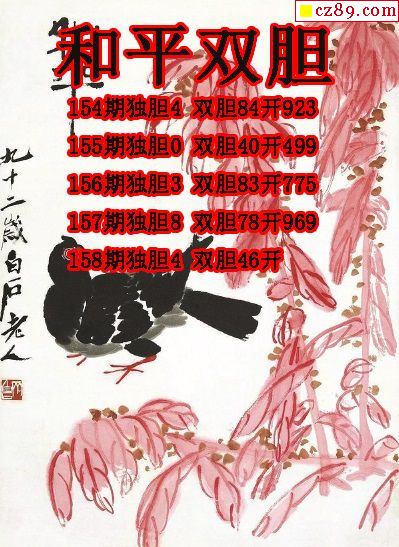 cz89.com
和平双胆
154期独胆4 双胆84开923
155期独胆0 双胆40开499
156期独胆3 双胆83开775
157期独胆8 双胆78开969
158期独胆4 双胆46开
九十二岁白石老人